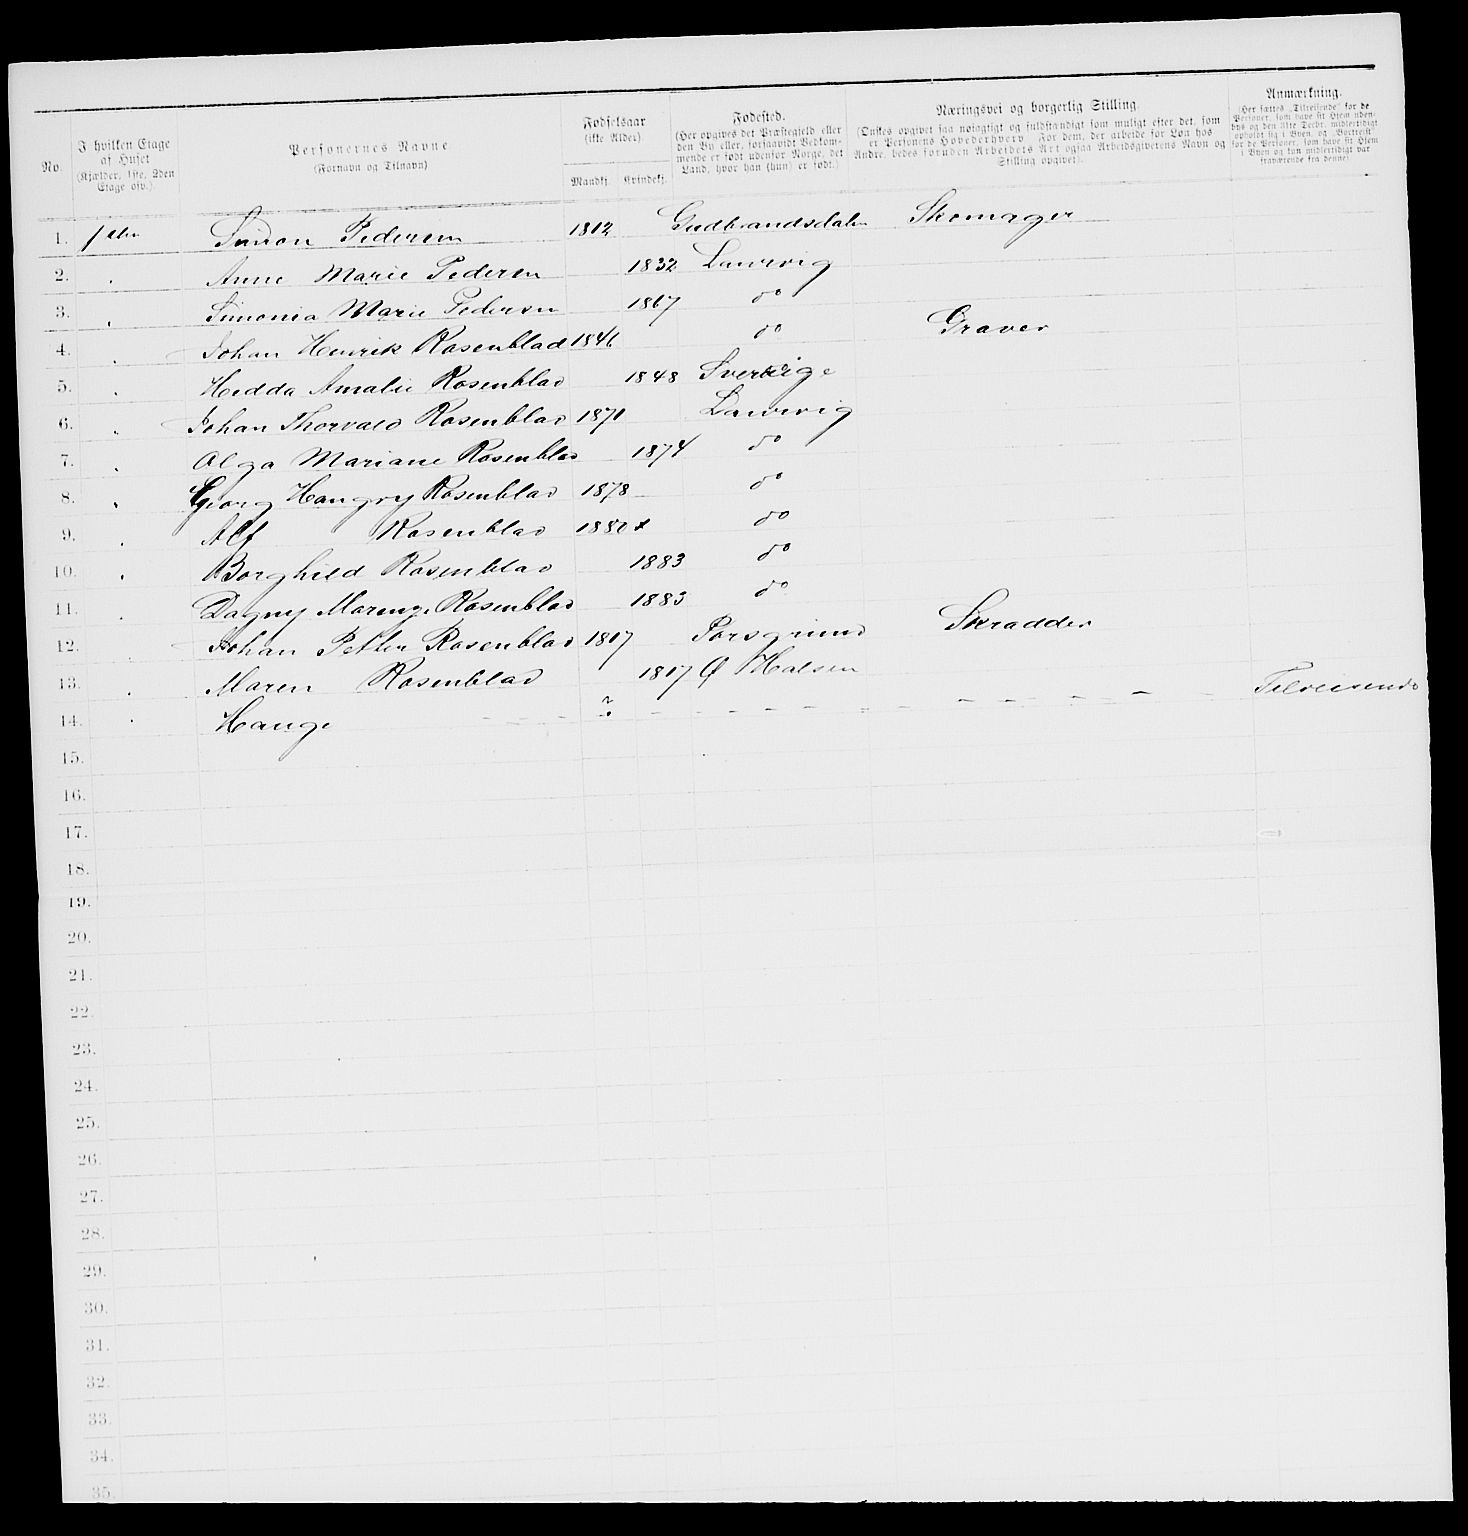 No. | I hvilken Etage af Huset (Kjælder, 1ste, 2den Etage osv.) | Personernes Navne (Fornavn og Tilnavn) | Fødselsaar (ikke Alder) Mandkj. Kvindekj. | Fødested. (Her opgives det Præstegjeld eller den By eller, forsaavidt Vedkommende er født udenfor Norge, det Land, hvor han (hun) er født.) | Næringsvei og borgerlig Stilling. (Ønskes opgivet saa nøiagtigt og fuldstændigt som muligt efter det, som er Personens Hovederhverv. For dem, der arbeide for Løn hos Andre, bedes foruden Arbeidets Art ogsaa Arbeidsgiverens Navn og Stilling opgivet). | Anmærkning. (Her sættes „Tilreisende“ for de Personer, som have sit Hjem udenbys og den 31te Decbr. midlertidigt opholdt sig i Byen, og „Bortreist“ for de Personer, som have sit Hjem i Byen og kun midlertidigt var fraværende fra denne)
1. Simon Pedersen 1812 Gudbrandsdalen Skomager
2. Anne Marie Pedersen 1832 Laurvig
3. Simonia Marie Pedersen 1867 do
4. Johan Henrik Rosenblad 1846 do Graver
5. Hedda Amalie Rosenblad 1848 Sverrige
6. Johan Thorvald Rosenblad 1871 Laurvig
7. Olga Mariane Rosenblad 1874 do
8. Georg Rosenblad 1878 do
9. Alf Rosenblad 1880 do
10. Borghild Rosenblad 1883 do
11. Dagny Rosenblad 1883 do
12. Johan Petter Rosenblad 1817 Porsgrund Skradder
13. Maren Rosenblad 1817 Ø Halsen
14. Hauge ? - - - Tilreisende
15.
16.
17.
18.
19.
20.
21.
22.
23.
24.
25.
26.
27.
28.
29.
30.
31.
32.
33.
34.
35.